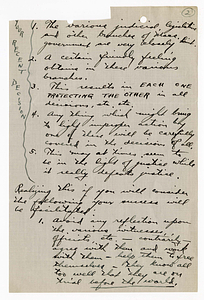 2
OUR RECENT DECISION
1. The various judicial, legislative
and other branches of
government are very closely
2. A certain friendly feeling
obtains in these various
branches.
3. This results in EACH ONE
PROTECTING THE OTHER in all
decisions, etc. etc.
4. Any thing which might bring
to light improper acts by
one of these will be carefully
covered in the decision of all.
5. This may at times seem to
be in the light of justice while
it really defeats justice.
Realizing this if you will consider
the following your success will
be
1. Avoid any reflection upon
the various witnesses,
officials, etc —
agree with them and work
with them — help them to free
themselves. They know all
too well that they are on
trial before the world.